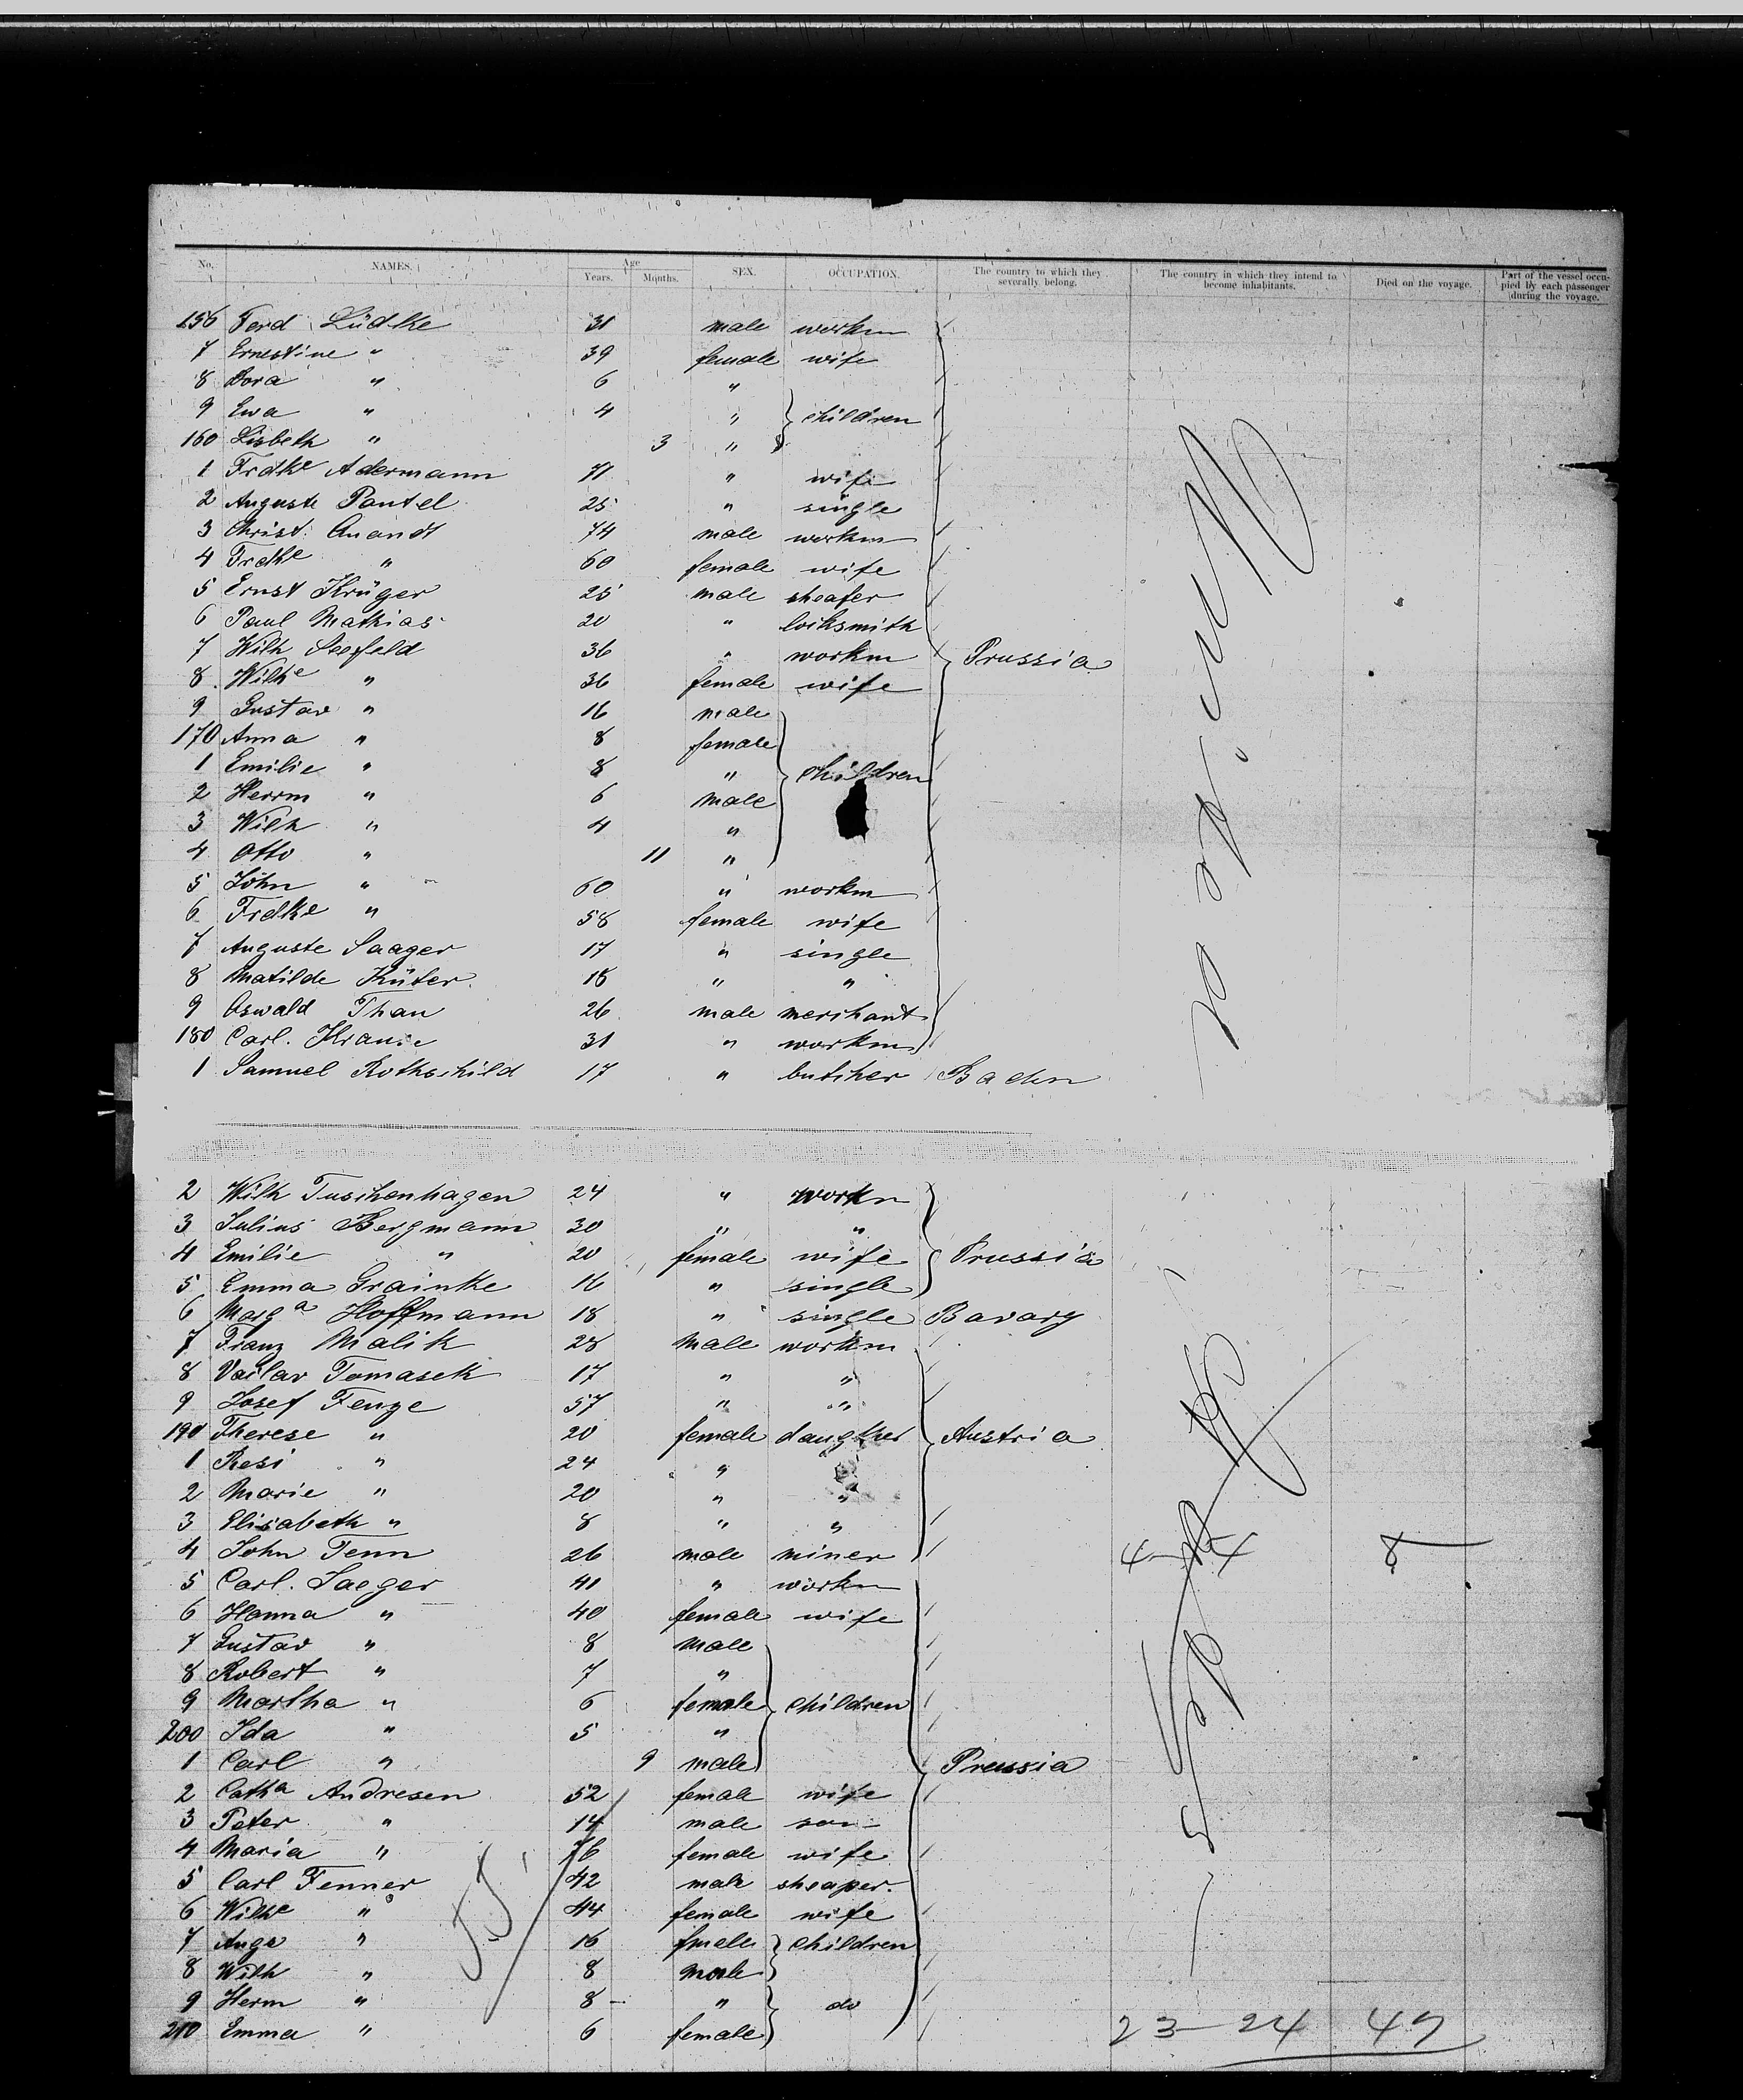 No. NAMES. Age Years. Months. SEX. OCCUPATION. The country to which they severally belong. The country in which they intend to become inhabitants. Died on the voyage. Part of the vessel occupied by each passenger during the voyage.
156 Ferd Lüdke 31 male workm
7 Ernestine " 39 female wife
8 Dora " 6 "
9 Ewa " 4 " children
160 Lisbeth " 3 "
1 Frdke Adermann 71 " wife
2 Auguste Pantel 25 " single
3 Christ. 74 male workm
4 Frdke " 60 female wife
5 Ernst Krüger 25 male sheafer
6 Paul Mathias 20 " locksmith
7 Wilh Seefeld 36 " workm Prussia
8 Wilhe " 36 female wife
9 Gustav " 16 male
170 Anna " 8 female
1 Emilie " 8 " children
2 Herrm " 6 male
3 Wilh " 4 "
4 Otto " 11 "
5 John " 60 " workm
6 Frdke " 58 female wife
7 Auguste Saager 17 " single
8 Matilde Küter 18 " "
9 Oswald Than 26 male merchant
180 Carl. Krause 31 " workm
1 Samuel Rothschild 17 " butcher Baden
2 Wilh Tuschenhagen 24 " workn
3 Julius Bergmann 30 " "
4 Emilie " 20 female wife Prussia
5 Emma Grainke 16 " single
6 Marga Hoffmann 18 " single Bavary
7 Franz Malik 28 male workm
8 Vaclav Tomasek 17 " "
9 Josef Fenze 57 " "
190 Therese " 20 female daugther Austria
1 Resi " 24 "
2 Marie " 20 " "
3 Elisabeth " 8 " "
4 John Tenn 26 male miner 4 4 8
5 Carl. Saeger 41 " workn
6 Hanna " 40 female wife
7 Gustav " 8 male
8 Robert " 7 "
9 Martha " 6 female children
200 Ida " 5 "
1 Carl " 9 male Prussia
2 Catha Andresen 52 female wife
3 Peter " 14 male son
4 Maria " 76 female wife
5 Carl Fenner 42 male sheaper.
6 Wilhe " 44 female wife
7 Auge " 16 fmale children
8 Wilh " 8 male
9 Herm " 8 " do
210 Emma " 6 female 23 - 24 47